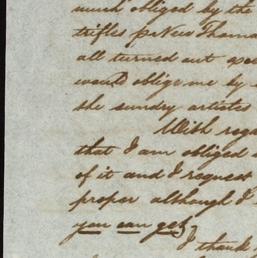 much obliged by the
trifles pr New Thoma
all turned out
would oblige me by
the sundry articles
With rega
that I am obliged
of it and I request
proper although I
you can get
I thank